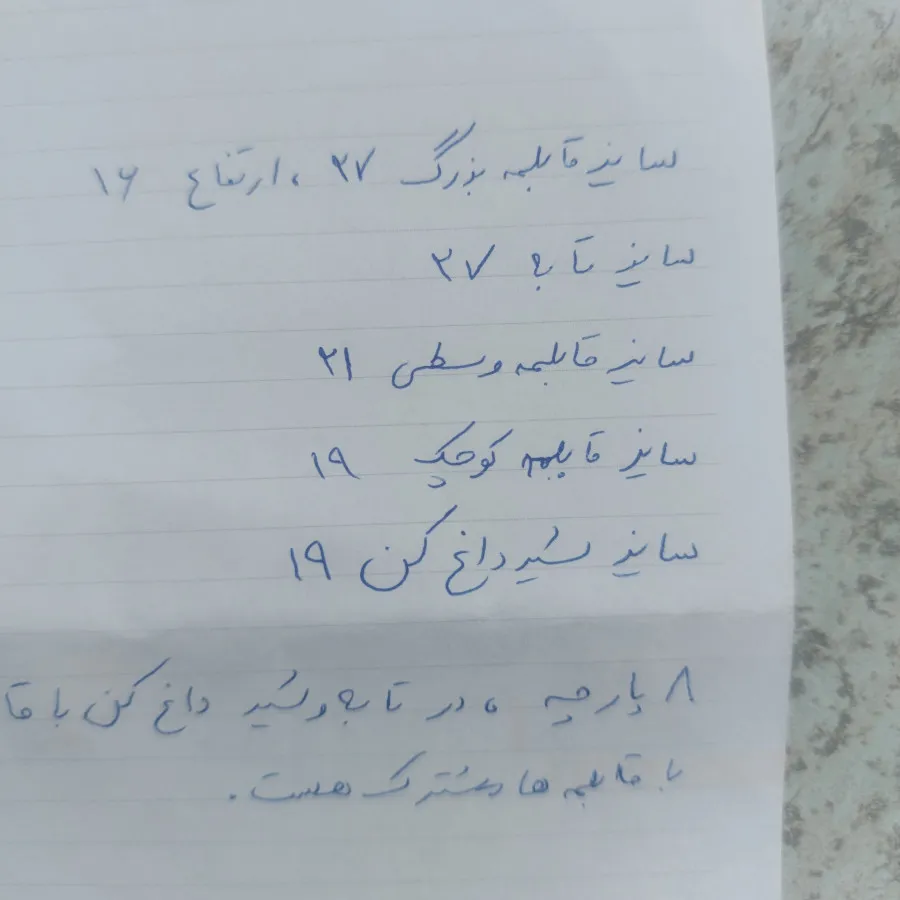 سایز قابلمه بزرگ ۲۷ ، ارتفاع ۱۶
سایز تابه ۲۷
سایز قابلمه وسطی ۲۱
سایز قابلمه کوچک ۱۹
سایز شیر داغ کن ۱۹
۸ پارچه ، در تابه و شیر داغ کن با قا
با قابلمه ها مشترک هست.